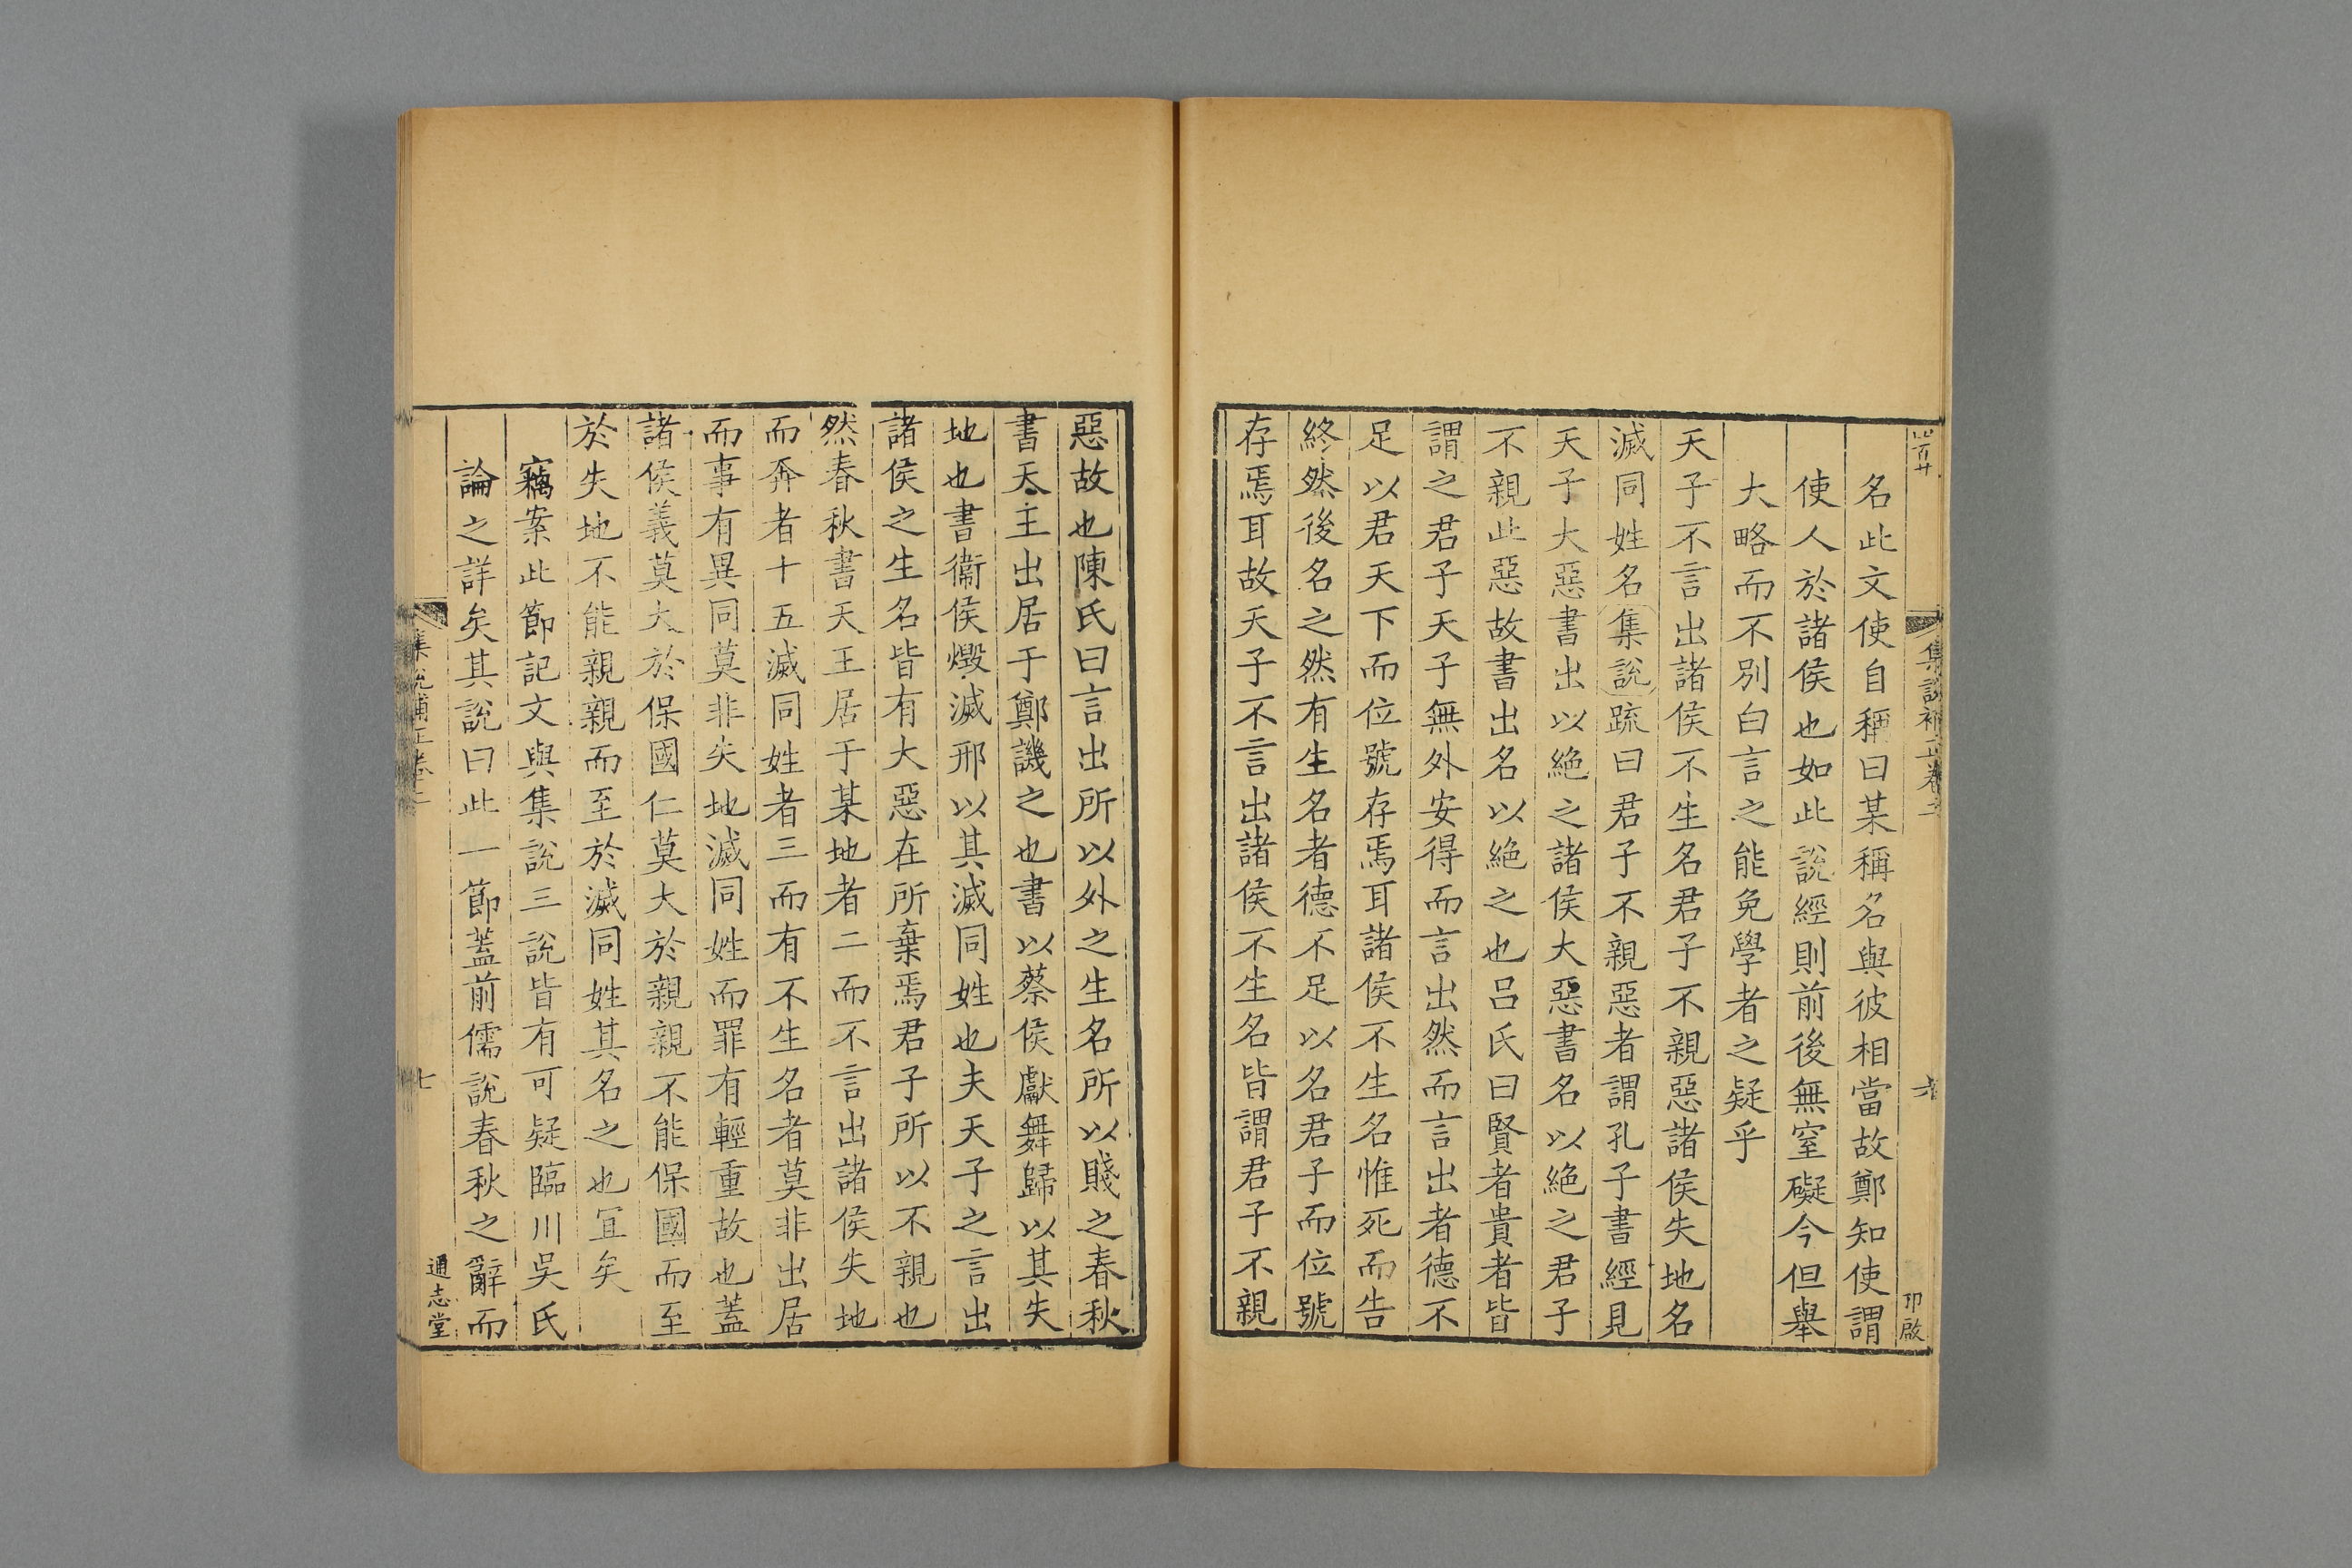 名此文使自稱曰某稱名與彼相當故鄭知使謂
使人於諸侯也如此說經則前後無窒礙今但舉
大略而不別白言之能免學者之疑乎
天子不言出諸侯不生名君子不親惡諸侯失地名
滅同姓名集說疏曰君子不親惡者謂孔子書經見
天子大惡書出以絕之諸侯大惡書名以絕之君子
不親此惡故書出名以絕之也呂氏曰賢者貴者皆
謂之君子天子無外安得而言出然而言出者德不
足以君天下而位號存焉耳諸侯不生名惟死而告
終然後名之然有生名者德不足以名君子而位號
存焉耳故天子不言出諸侯不生名皆謂君子不親
集說補正卷二
六
卭啟
惡故也陳氏曰言出所以外之生名所以賤之春秋
書天主出居于鄭譏之也書以蔡侯獻舞歸以其失
地也書衞侯燬滅邢以其滅同姓也夫天子之言出
諸侯之生名皆有大惡在所棄焉君子所以不親也
然春秋書天王居于某地者二而不言出諸侯失地
而奔者十五滅同姓者三而有不生名者莫非出居
而事有異同莫非失地滅同姓而罪有輕重故也蓋
諸侯義莫大於保國仁莫大於親親不能保國而至
於失地不能親親而至於滅同姓其名之也宜矣
竊案此節記文與集說三說皆有可疑臨川吳氏
論之詳矣其說曰此一節蓋前儒說春秋之辭而
集說補正卷二
七
通志堂